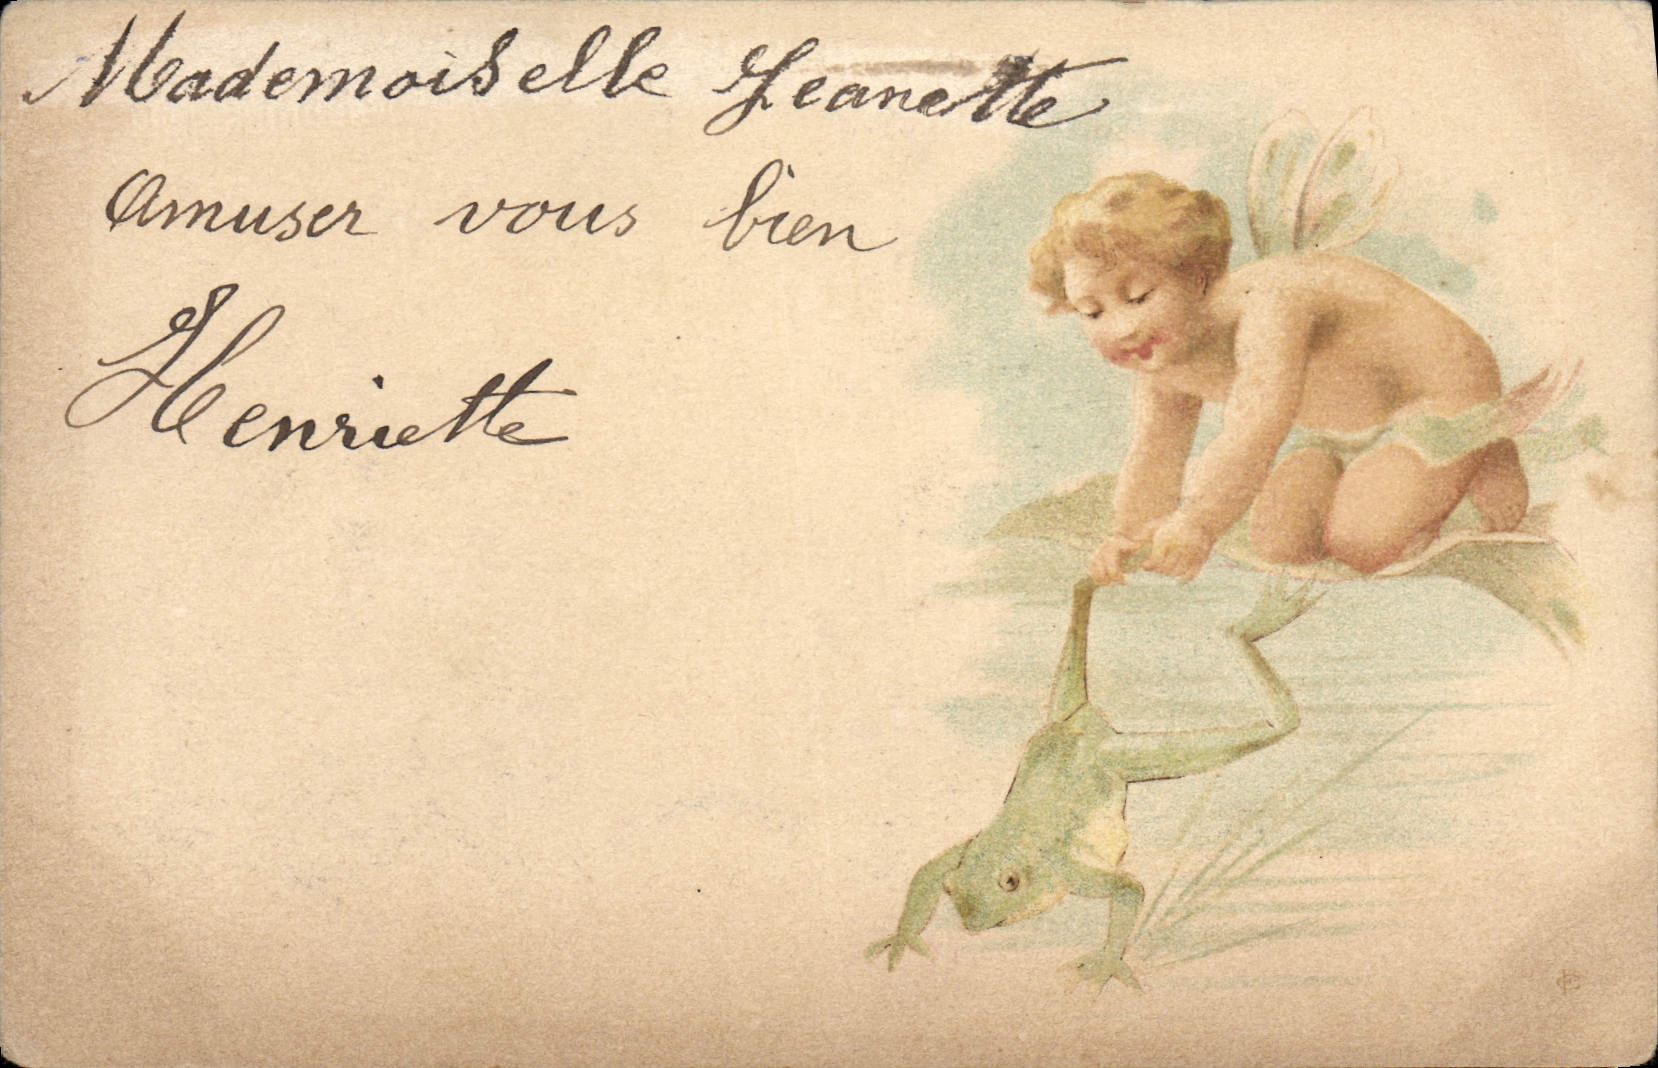 Mademoiselle Jeanette
Amuser vous bien
Henriette